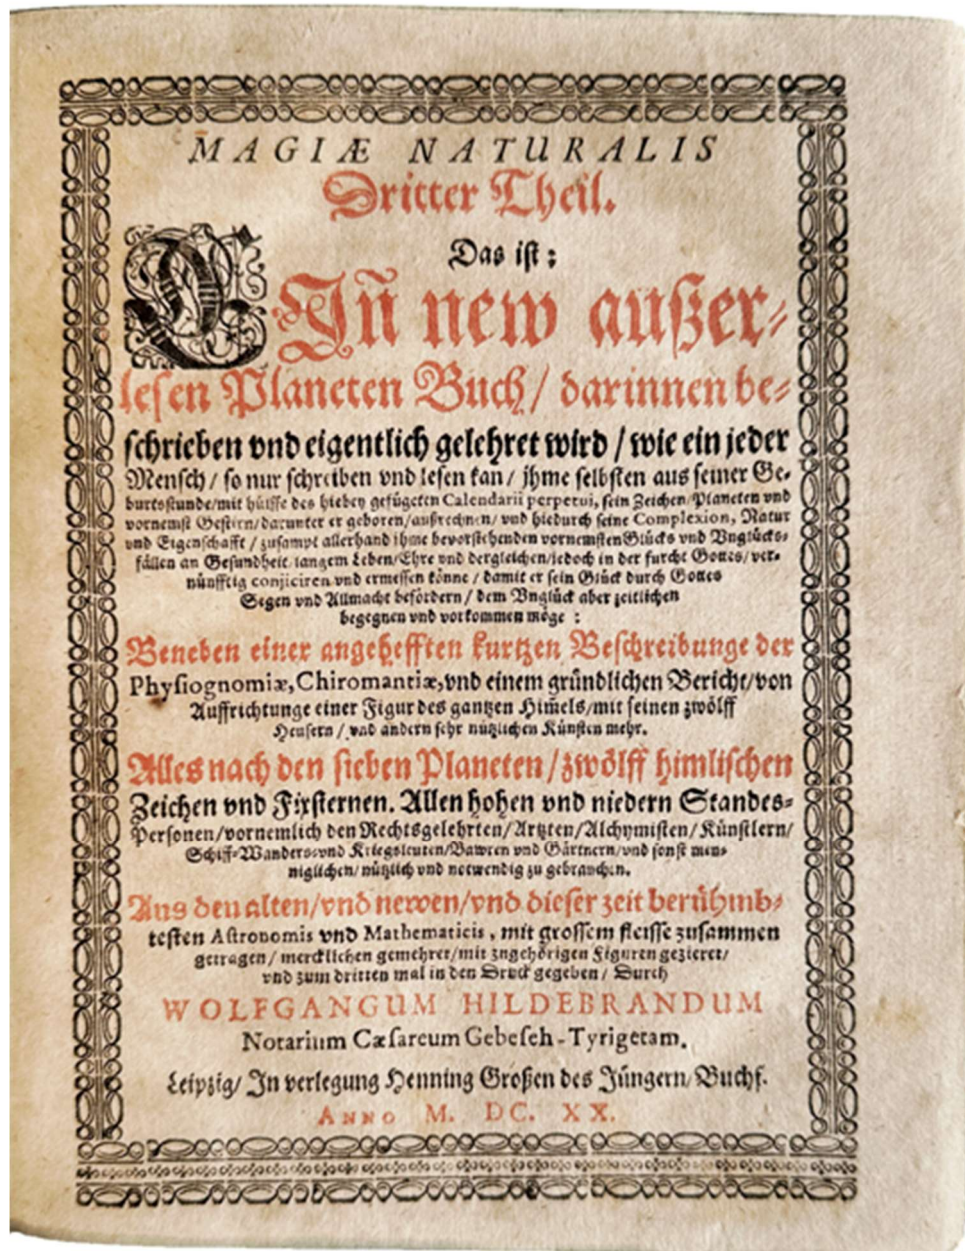 MAGIÆ NATURALIS
Dritter Theil.
Das ist:
EIn̄ new außer-
lesen Planeten Buch/ darinnen be-
schrieben vnd eigentlich gelehret wird / wie ein jeder
Mensch / so nur schreiben vnd lesen kan / jhme selbsten aus seiner Ge-
burtsstunde/mit hülffe des hiebey gefügeten Calendarii perpetui, sein Zeichen/Planeten vnd
vornemst Gestirn/darunter er geboren/außrechnen/ vnd hiedurch seine Complexion, Natur
vnd Eigenschafft / zusampt allerhand ihme bevorstehenden vornemsten Glücks vnd Vnglücks-
fällen an Gesundheit/langem Leben/Ehre vnd dergleichen/jedoch in der furcht Gottes/ ver-
nünfftig conjiciren vnd ermessen könne / damit er sein Glück durch Gottes
Segen vnd Allmacht befördern / dem Vnglück aber zeitlichen
begegnen vnd vorkommen möge :
Beneben einer angehefften kurtzen Beschreibunge der
Physiognomiæ, Chiromantiæ, vnd einem gründlichen Bericht/von
Auffrichtunge einer Figur des gantzen Him̄els/mit seinen zwölff
Heusern / vnd andern sehr nützlichen Künsten mehr.
Alles nach den sieben Planeten / zwölff himlischen
Zeichen vnd Fixsternen. Allen hohen vnd niedern Standes-
Personen/vornemlich den Rechtsgelehrten/Artzten/Alchymisten/Künstlern/
Schiff-Wanders-vnd Kriegsleuten/Bawren vnd Gärtnern/vnd sonst men-
niglichen/ nützlich vnd notwendig zu gebrauchen.
Aus den alten/vnd newen/vnd dieser zeit berühmb-
testen Astronomis vnd Mathematicis, mit grossem fleisse zusammen
getragen / mercklichen gemehret/mit zugehörigen Figuren gezieret/
vnd zum dritten mal in den Druck gegeben / Durch
WOLFGANGUM HILDEBRANDUM
Notarium Cæsareum Gebeseh-Tyrigetam.
Leipzig/ In verlegung Henning Großen des Jüngern/Buchf.
ANNO M. DC. XX.